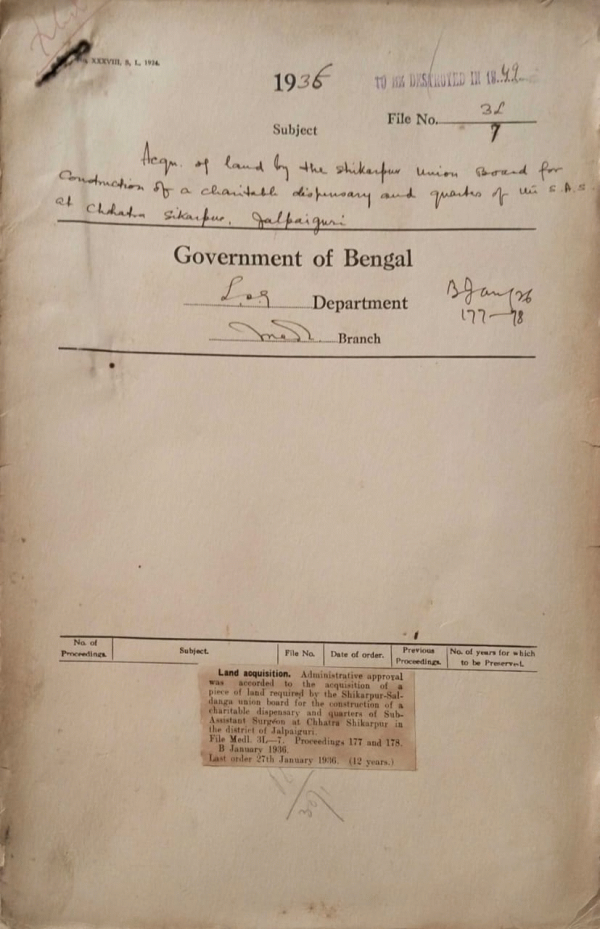 XXXVIII, S, I, 1934.
1936
TO BE DESTROYED IN 19 49
File No. 3L
7
Subject
Acqn. of land by the Shikarpur Union Board for
Construction of a charitable dispensary and quarters of the S.A.S.
at Chhatra Sikarpur, Jalpaiguri
Government of Bengal
Department
B Jany 36
177—78
Medl. Branch
No. of Proceedings.
Subject.
File No.
Date of order.
Previous Proceedings.
No. of years for which to be Preserved.
Land acquisition. Administrative approval
was accorded to the acquisition of a
piece of land required by the Shikarpur-Sal-
danga union board for the construction of a
charitable dispensary and quarters of Sub-
Assistant Surgeon at Chhatra Shikarpur in
the district of Jalpaiguri.
File Medl. 3L—7. Proceedings 177 and 178.
B January 1936.
Last order 27th January 1936. (12 years.)